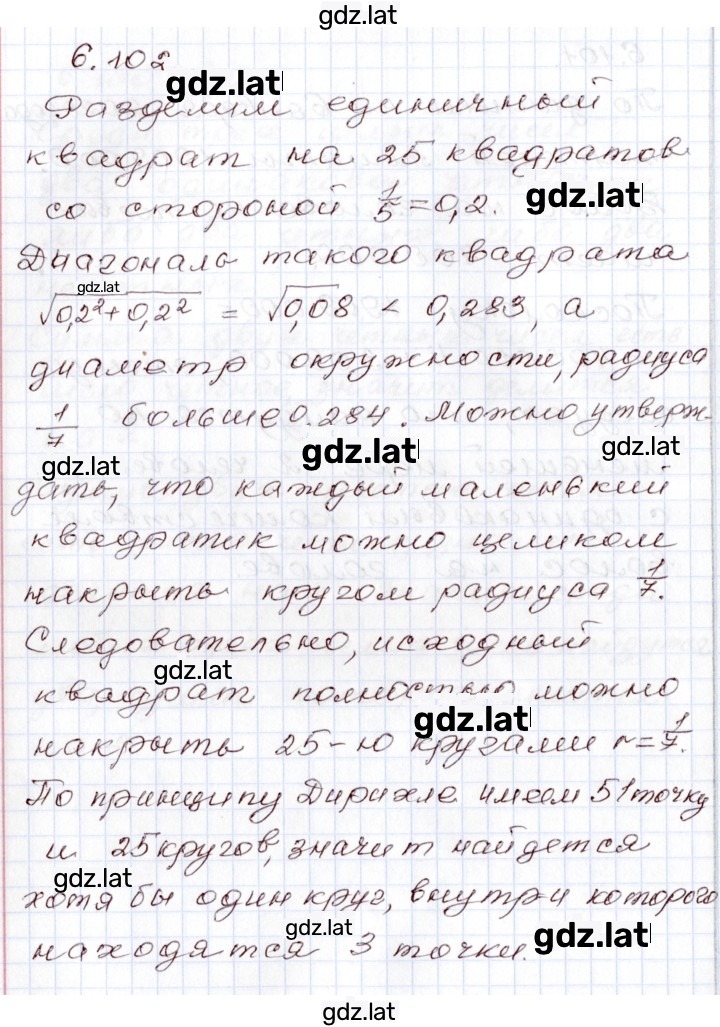 gdz.lat
6.102
gdz.lat
Разделим единичный
квадрат на 25 квадратов
со стороной 1/5 = 0,2. gdz.lat
Диагональ такого квадрата
gdz.lat
√0,2² + 0,2² = √0,08 < 0,283, а
диаметр окружности, радиуса
1/7 больше 0.284. Можно утверж-
gdz.lat gdz.lat gdz.lat
дать, что каждый маленький
квадратик можно целиком
накрыть кругом радиуса 1/7.
Следовательно, исходный
gdz.lat
квадрат полностью можно
gdz.lat
накрыть 25-ю кругами r = 1/7.
По принципу Дирихле имеем 51 точку
и 25 кругов, значит найдется
gdz.lat
хотя бы один круг, внутри которого
gdz.lat gdz.lat
находятся 3 точки.
gdz.lat